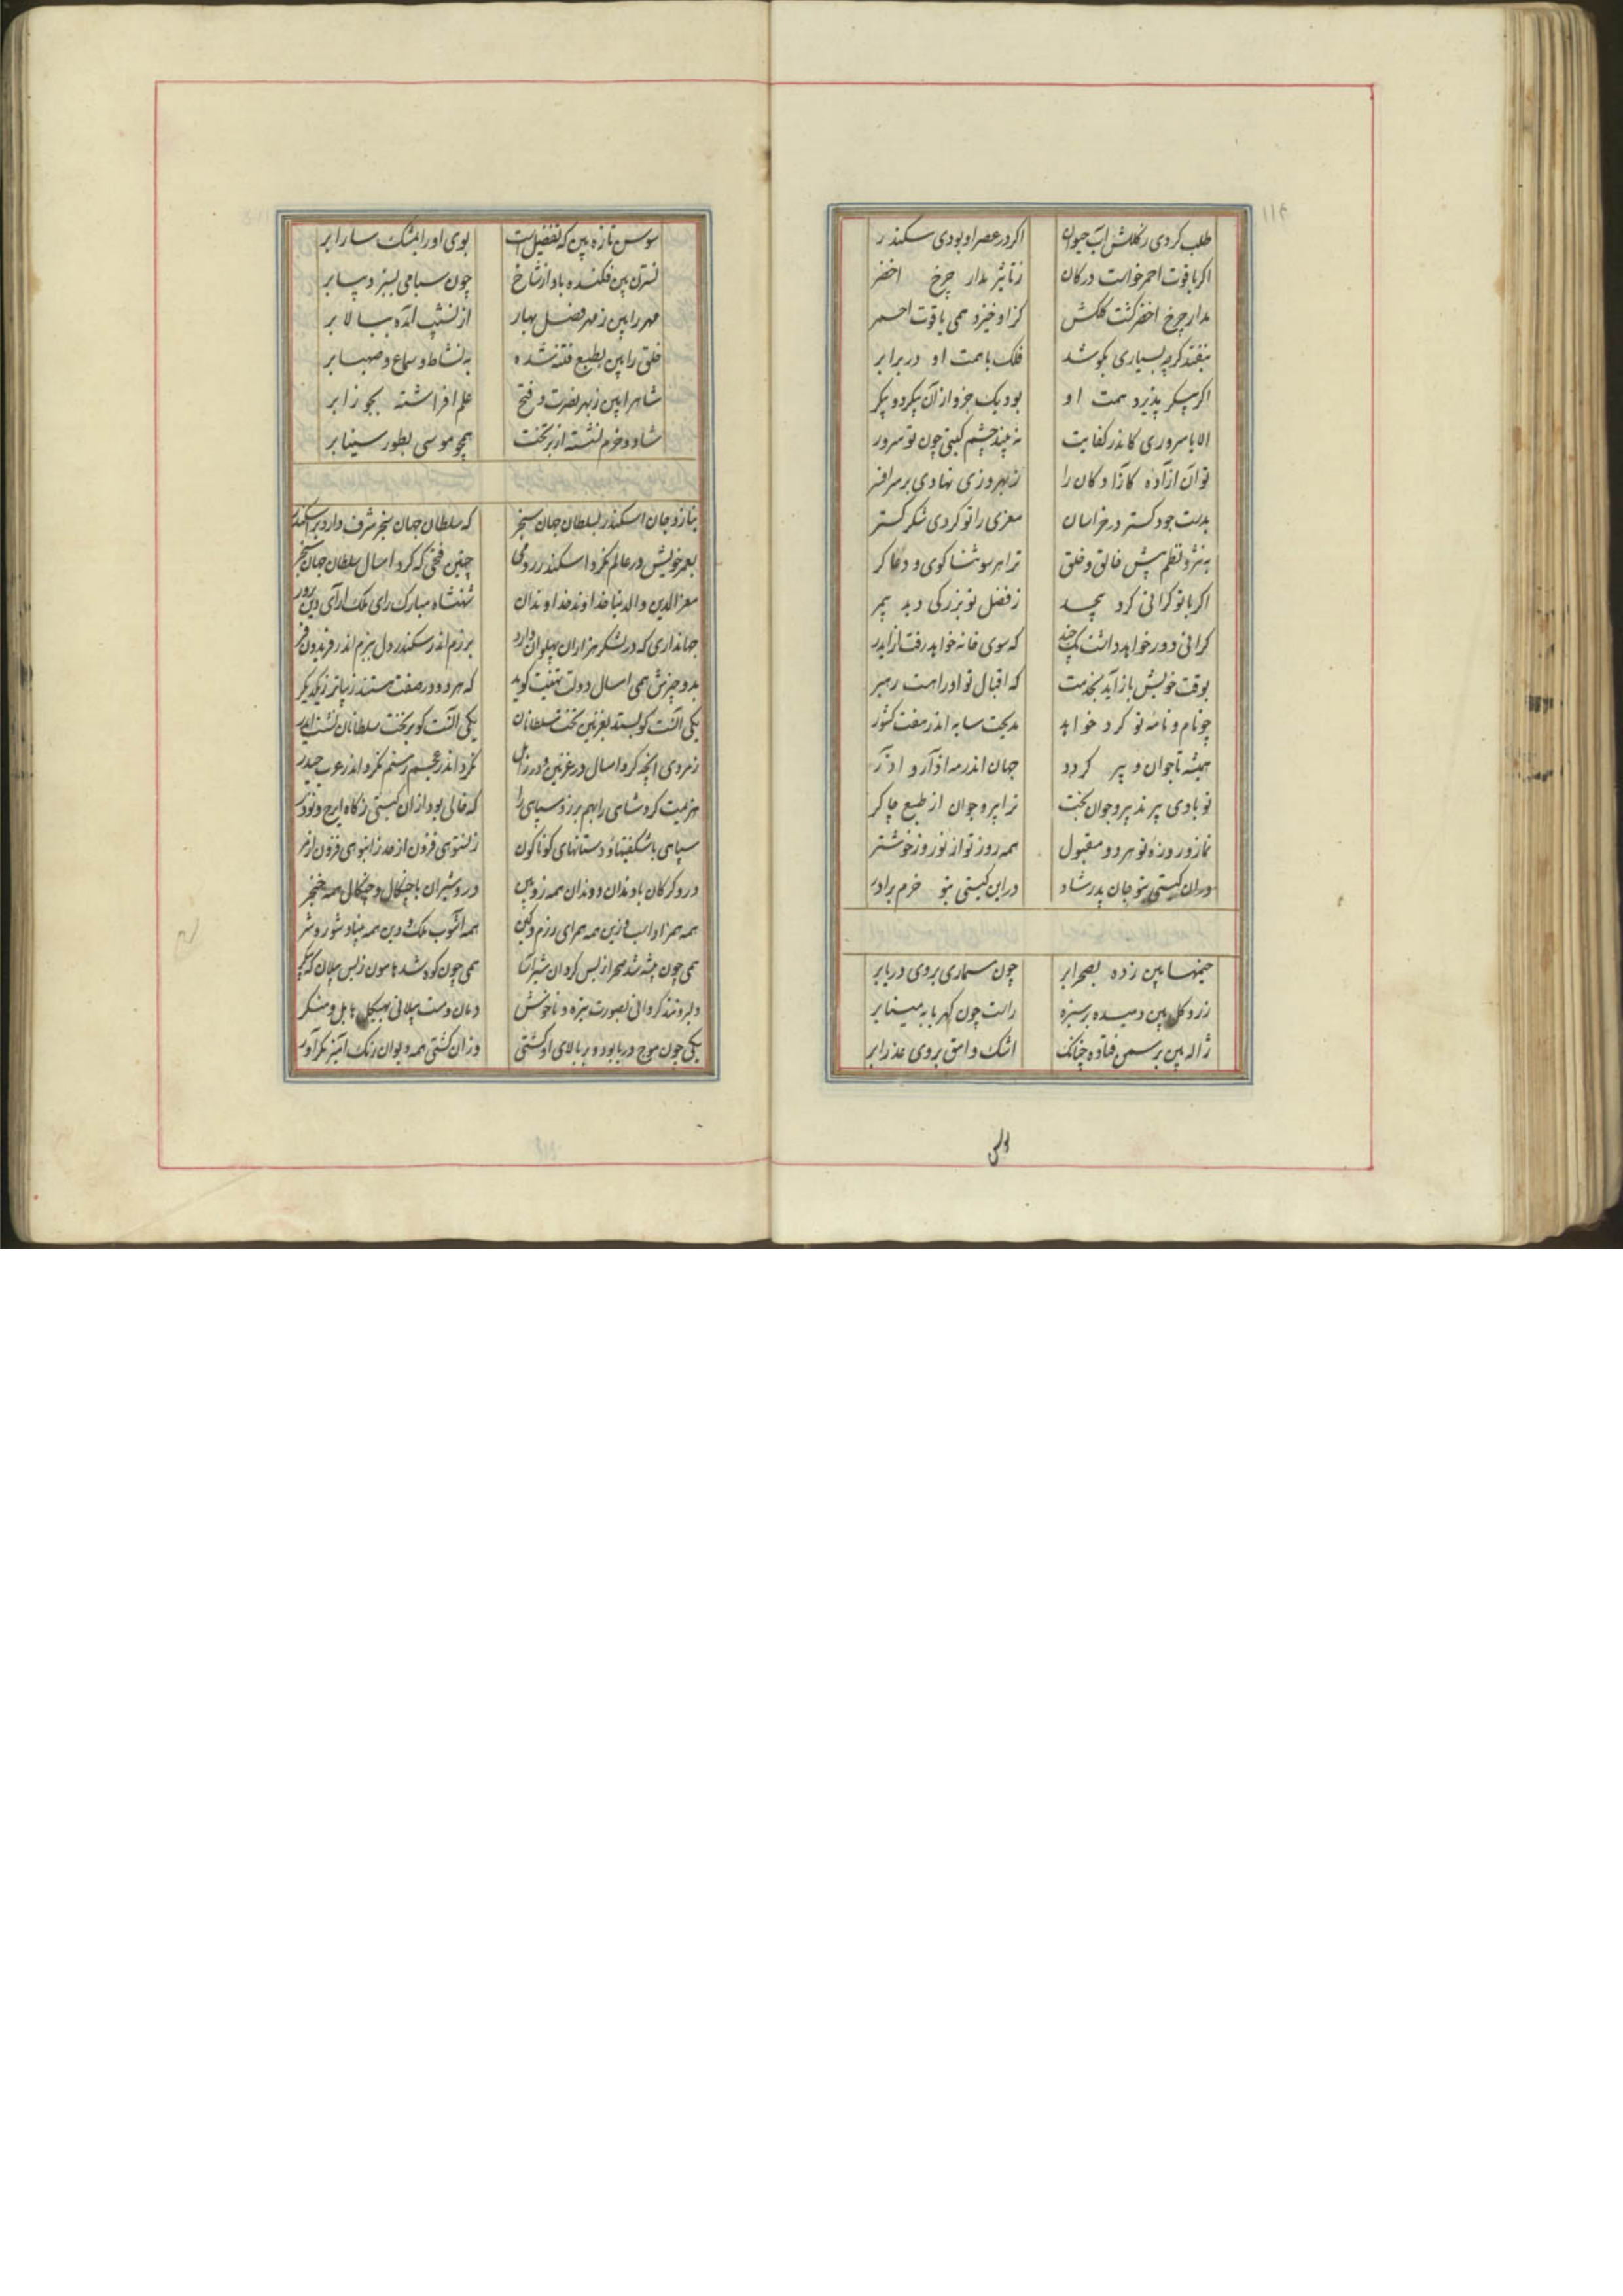 ۱۱۴
طلب کردی ز کلکش آب حیوان اکر در عصر او بودی سکندر
اکر یاقوت احمر خواست در کان ز تاثیر مدار چرخ اخضر
مدار چرخ اخضر کشت کلکش کز او خیزد همی یاقوت احمر
بیفتد کرچه بسیاری بکوشد فلک با همت او در برابر
اکر پیکر پذیرد همت او بود یک جزو از آن پیکر دو پیکر
الا یا سروری کاندر کفایت نه بیند چشم کیتی چون تو سرور
تو آن آزاده کآزادکان را ز بهروزی نهادی بر سر افسر
بدست جود کستر در خراسان معزی را تو کردی شکر کستر
به نثر و نظم پیش خالق و خلق ترا هر سو ثنا کوی و دعا کر
اکر با تو کرانی کرد بیحد ز فضل تو بزرکی دید بیمر
کرانی دور خواهد داشت یک چند که سوی خانه خواهد رفت از ایدر
بوقت خویش باز آید بخدمت که اقبال تو او را هست رهبر
چو نام و نامه تو کرد خواهد مدیحت سایه اندر هفت کشور
همیشه تا جوان و پیر کردد جهان اندر مه آذار و آذر
تو بادی پیر تدبیر و جوان بخت ترا پیر و جوان از طبع چاکر
نماز و روزه تو هر دو مقبول همه روز تو از نوروز خوشتر
در آن کیتی بتو جان پدر شاد در این کیتی بتو خرم برادر
خیمها بین زده بصحرا بر چون سماری بروی دریا بر
زرد کل بین دمیده بر سبزه راست چون کهربا به مینا بر
ژاله بین بر سمن فتاده چنانک اشک وامق بروی عذرا بر
سوسن تازه بین که تفضیل است بوی او را بمشک سارا بر
نسترن بین فکنده باد از شاخ
مهر را بین ز مهر فصل بهار از نشیب آمده ببالا بر
خلق را بین بطبع فتنه شده به نشاط و سماع و صهبا بر
شاه را بین ز بهر نصرت و فتح علم افراشته بجوزا بر
شاد و خرم نشسته از بر تخت همچو موسی بطور سینا بر
بنازد جان اسکندر بسلطان جهان سنجر که سلطان جهان سنجر شرف دارد بر اسکندر
بعمر خویش در عالم نکرد اسکندر رومی چنین فتحی که کرد امسال سلطان جهان سنجر
معز الدین و الدنیا خداوند خداوندان شهنشاه مبارک رای ملک آرای دین پرور
جهانداری که در لشکر هزاران پهلوان دارد برزم اندر سکندر دل ببزم اندر فریدون فر
بدو چیزش همی امسال دولت تهنیت کوید که هر دو در صفت هستند زیباتر ز یکدیکر
یکی آنست کو بستد بغزنین تخت سلطانان یکی آنست کو بر تخت سلطانان نشست ایدر
ز مردی آنچه کرد امسال در غزنین و در زابل نکرد اندر عجم رستم نکرد اندر عرب حیدر
هزیمت کرد شاهی را بهم بر زد سپاهی را که خالی بود از ان کیتی ز کاه ایرج و نوذر
سپاهی با شکفتیها و دستانهای کوناکون
در او کرکان با دندان و دندان همه زوبین در او شیران با چنکال و چنکال همه خنجر
همی چون بیشه شد صحرا ز بس کردان شیرآسا همی چون کوه شد هامون ز بس پیلان که پیکر
دمان و مست پیلانی بهیکل هایل و منکر
یکی چون موج دریا بود و بر بالای او کشتی